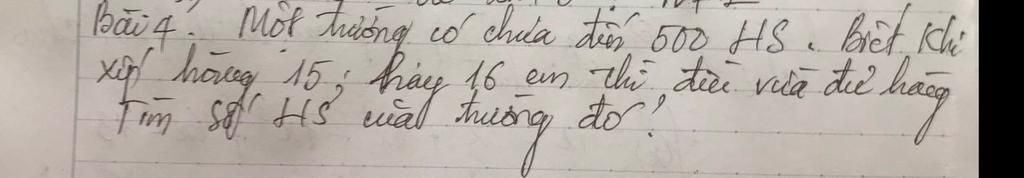 Bài 4. Một trường có chưa đến 500 HS. Biết khi
xếp hàng 15; hay 16 em thì đều vừa đủ hàng
Tìm số HS của trường đó?